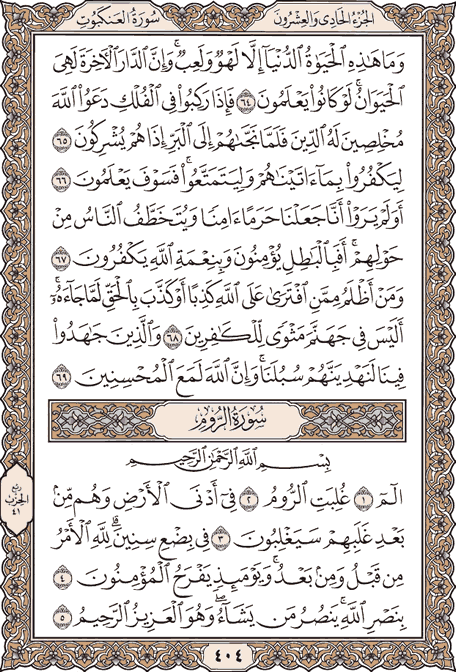 سُورَةُ العَنكَبُوتِ
الجُزْءُ الحَادِى وَالعِشْرُونَ
وَمَا هَٰذِهِ ٱلْحَيَوٰةُ ٱلدُّنْيَآ إِلَّا لَهْوٌ وَلَعِبٌ ۚ وَإِنَّ ٱلدَّارَ ٱلْءَاخِرَةَ لَهِىَ
ٱلْحَيَوَانُ ۚ لَوْ كَانُوا۟ يَعْلَمُونَ ٦٤ فَإِذَا رَكِبُوا۟ فِى ٱلْفُلْكِ دَعَوُا۟ ٱللَّهَ
مُخْلِصِينَ لَهُ ٱلدِّينَ فَلَمَّا نَجَّىٰهُمْ إِلَى ٱلْبَرِّ إِذَا هُمْ يُشْرِكُونَ ٦٥
لِيَكْفُرُوا۟ بِمَآ ءَاتَيْنَٰهُمْ وَلِيَتَمَتَّعُوا۟ ۖ فَسَوْفَ يَعْلَمُونَ ٦٦
أَوَلَمْ يَرَوْا۟ أَنَّا جَعَلْنَا حَرَمًا ءَامِنًا وَيُتَخَطَّفُ ٱلنَّاسُ مِنْ
حَوْلِهِمْ ۚ أَفَبِٱلْبَٰطِلِ يُؤْمِنُونَ وَبِنِعْمَةِ ٱللَّهِ يَكْفُرُونَ ٦٧
وَمَنْ أَظْلَمُ مِمَّنِ ٱفْتَرَىٰ عَلَى ٱللَّهِ كَذِبًا أَوْ كَذَّبَ بِٱلْحَقِّ لَمَّا جَآءَهُۥٓ ۚ
أَلَيْسَ فِى جَهَنَّمَ مَثْوًى لِّلْكَٰفِرِينَ ٦٨ وَٱلَّذِينَ جَٰهَدُوا۟
فِينَا لَنَهْدِيَنَّهُمْ سُبُلَنَا ۚ وَإِنَّ ٱللَّهَ لَمَعَ ٱلْمُحْسِنِينَ ٦٩
سُورَةُ الرُّومِ
بِسْمِ ٱللَّهِ ٱلرَّحْمَٰنِ ٱلرَّحِيمِ
الٓمٓ ١ غُلِبَتِ ٱلرُّومُ ٢ فِىٓ أَدْنَى ٱلْأَرْضِ وَهُم مِّنۢ
بَعْدِ غَلَبِهِمْ سَيَغْلِبُونَ ٣ فِى بِضْعِ سِنِينَ ۗ لِلَّهِ ٱلْأَمْرُ
مِن قَبْلُ وَمِنۢ بَعْدُ ۚ وَيَوْمَئِذٍ يَفْرَحُ ٱلْمُؤْمِنُونَ ٤
بِنَصْرِ ٱللَّهِ ۚ يَنصُرُ مَن يَشَآءُ ۖ وَهُوَ ٱلْعَزِيزُ ٱلرَّحِيمُ ٥
ربع
الحزب
٤١
٤٠٤